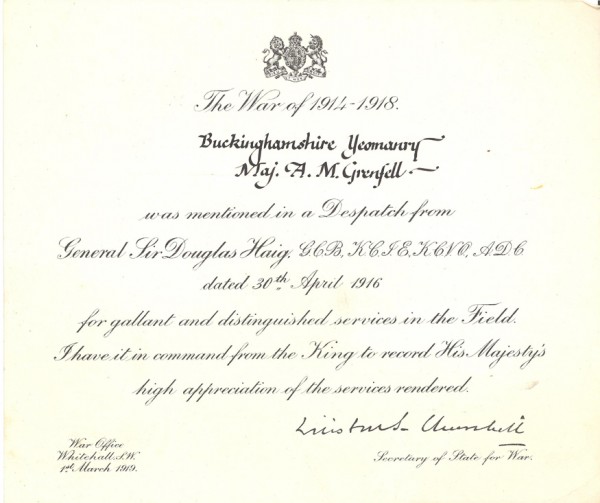 The War of 1914-1918.
Buckinghamshire Yeomanry
Maj. A. M. Grenfell.
was mentioned in a Despatch from
General Sir Douglas Haig, G.C.B, K.C.I.E, K.C.V.O, A.D.C
dated 30th April 1916
for gallant and distinguished services in the Field.
I have it in command from the King to record His Majesty's
high appreciation of the services rendered.
Winston S. Churchill
War Office
Whitehall. S.W.
1st March 1919.
Secretary of State for War.